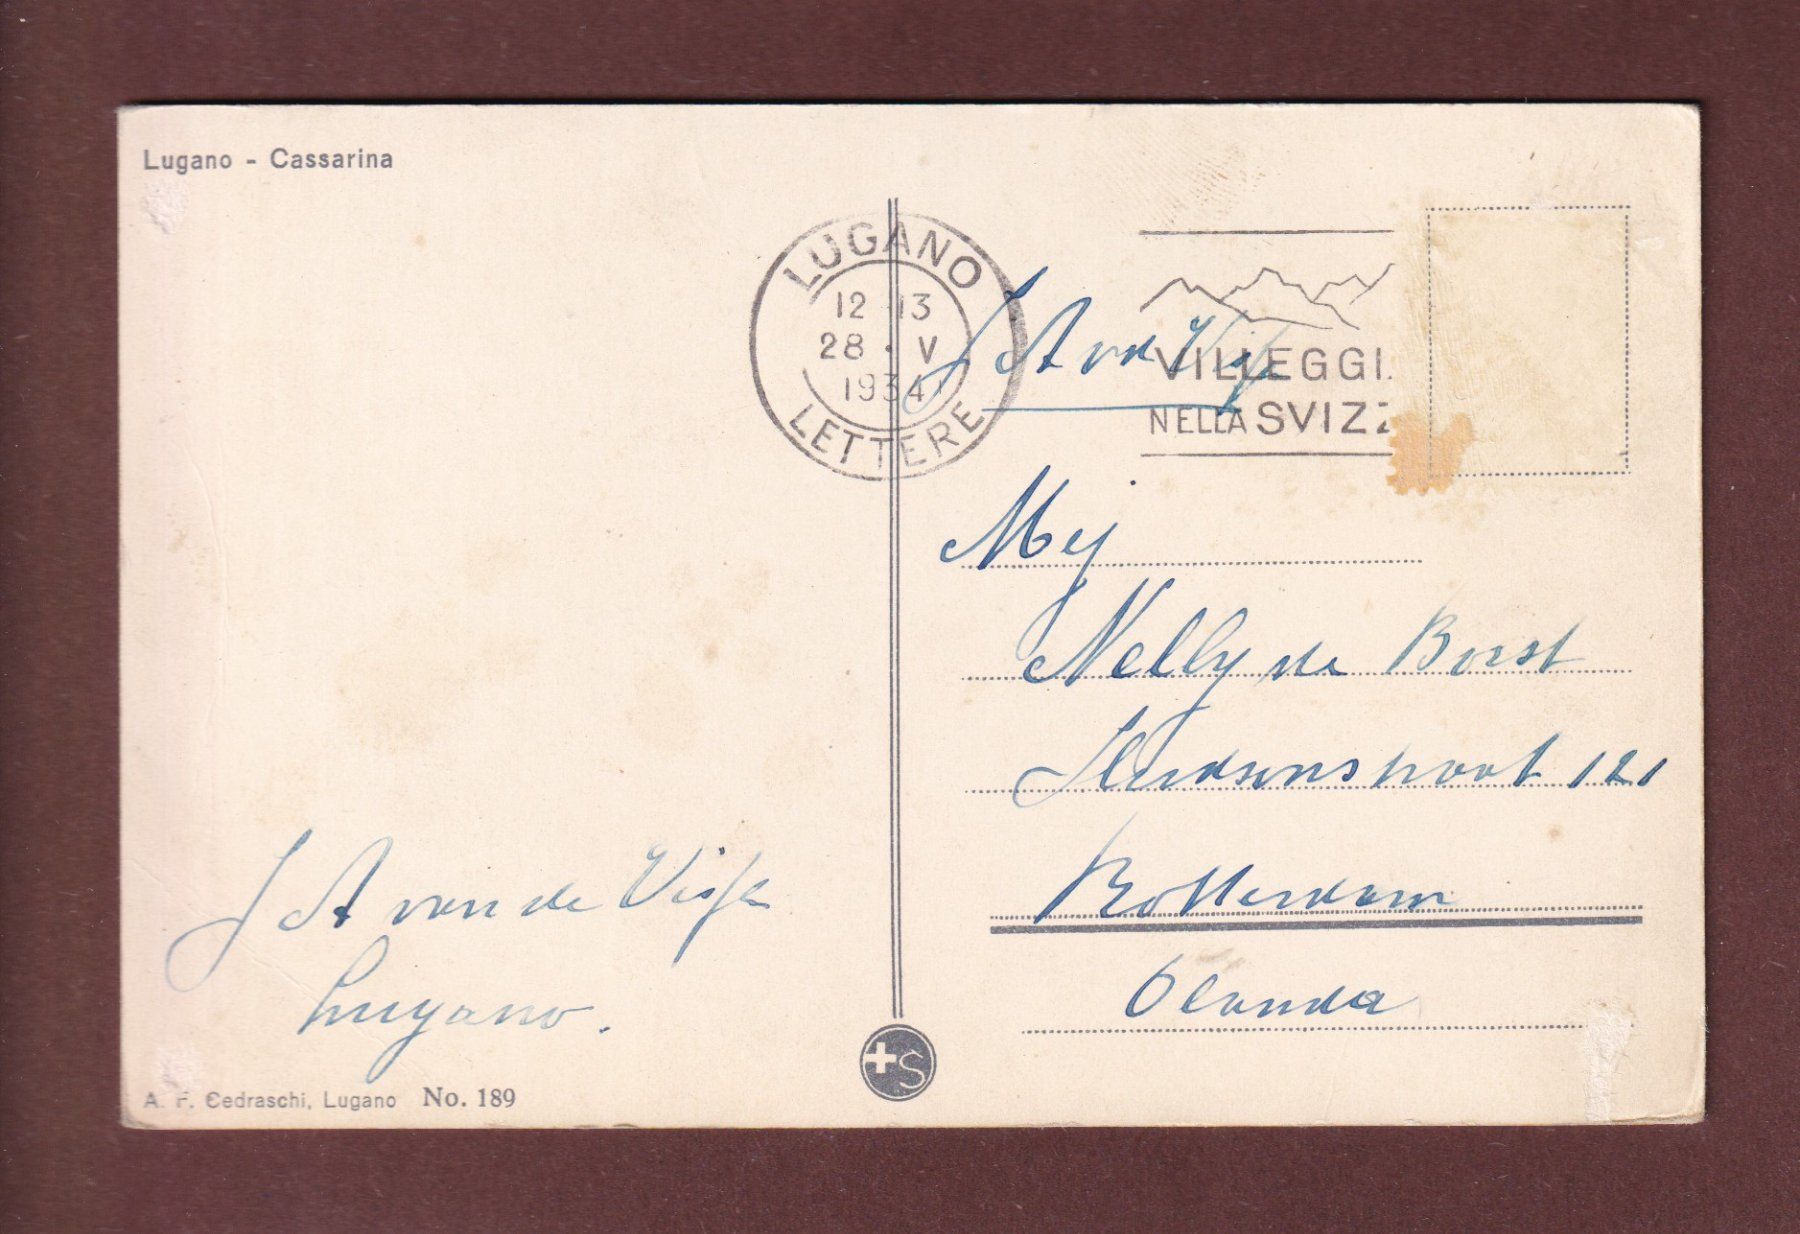 Lugano - Cassarina
LUGANO
12-13
28 · V
1934
LETTERE
VILLEGGI
NELLA SVIZZ
J A v
Mej
Nelly de Borst
Hudsonstraat 121
Rotterdam
Olanda
J A van de
Lugano.
+S
A. F. Cedraschi, Lugano No. 189